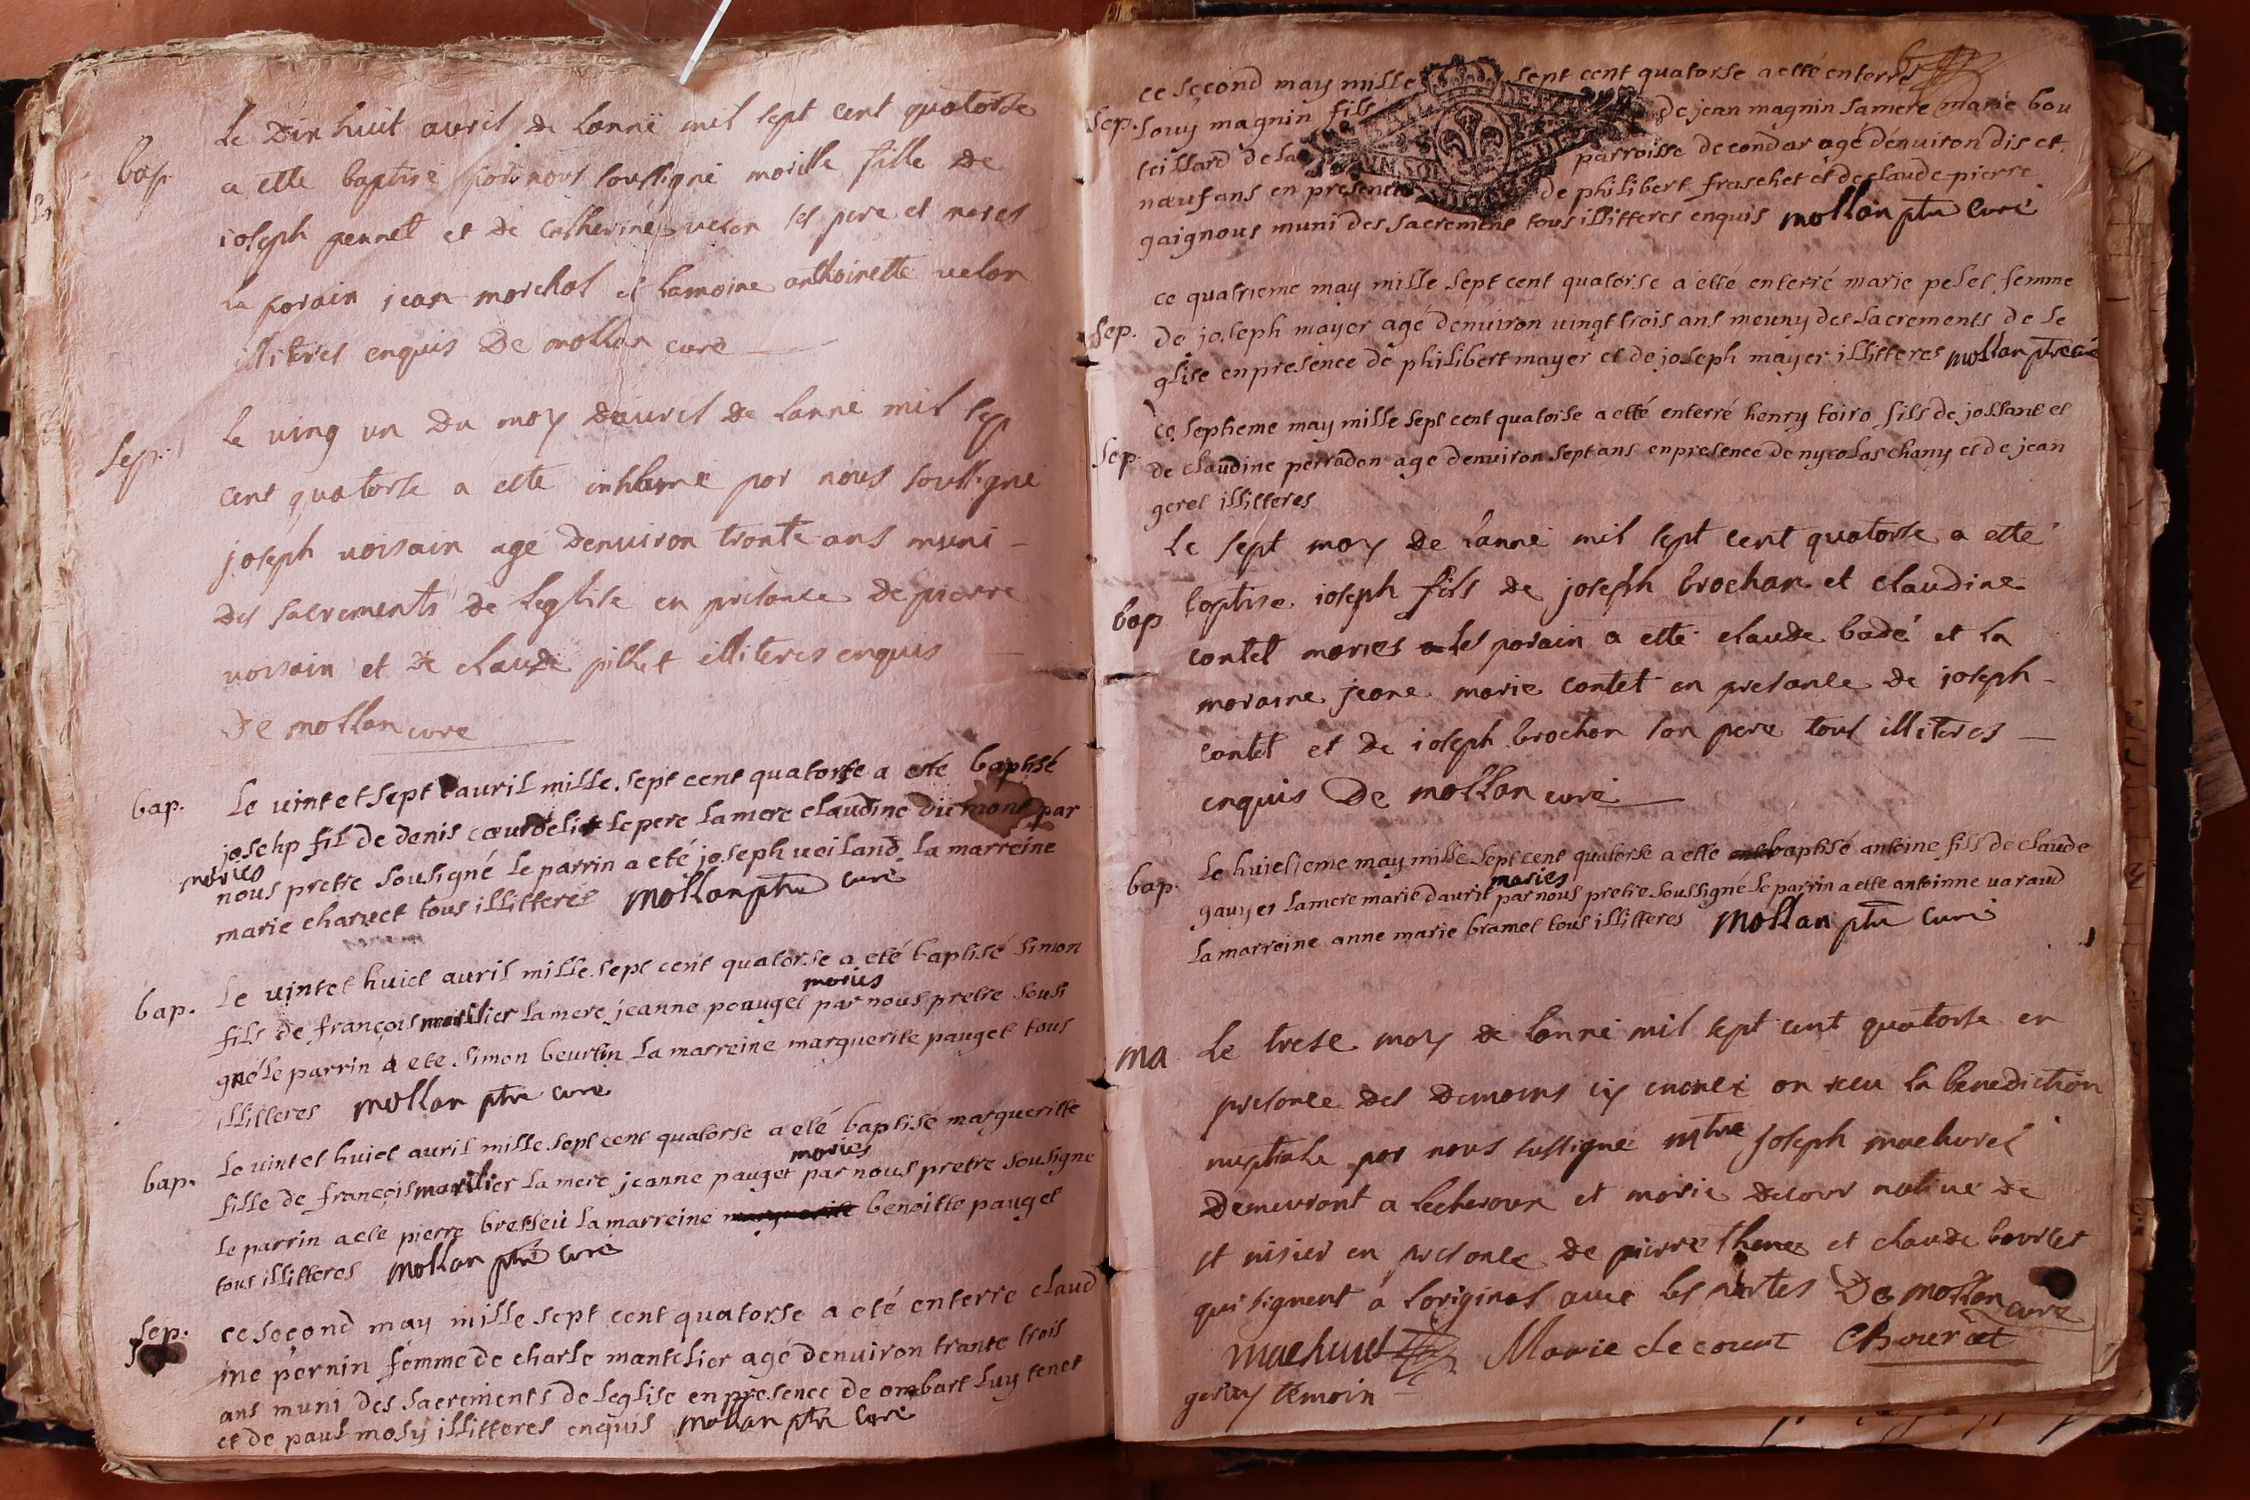 bap
Le Dix huit avril de lanné mil sept cent quatorse
a ette baptisé par nous soussigné fille de
ioseph pennet et de catherine velon ses pere et meres
la porain jean morchal et lamoine anthoinette velon
illiteres enquis De mollan curé
Sep.
Le ving un du moy davril de lanné mil sep
cent quatorse a ette inhumé par nous soussigné
joseph voisain agé denviron tronte ans muni
des sacrements de leglise en presance de pierre
voisain et de claude pillet illiteres enquis
De mollan curé
bap.
Le vint et sept avril mille sept cent quatorse a eté baptisé
josehp fil de denis cœurdelier le pere la mere claudine par
mariés
nous pretre sousigné le parrin a eté joseph veiland la marreine
marie charvet tous illitteres mollan ptre curé
bap.
Le vintet huict avril mille sept cent quatorse a eté baptisé simon
mariés
fils de françois marilier la mere jeanne peauget par nous pretre sousi
gné le parrin a ete simon beurtin la marreine marguerite pauget tous
illitteres mollan ptre curé
bap.
Le vintet huict avril mille sept cent quatorse a eté baptise margueritte
mariés
fille de françois marilier la mere jeanne pauget par nous pretre sousigne
le parrin a ete pierre bresseu la marreine benoitte pauget
tous illitteres mollan ptre curé
Sep.
ce second may mille sept cent quatorse a eté enterre claud
ine pernin femme de charle mantelier agé denviron trante trois
ans muni des sacrements de leglise en presence de ombart luy tenet
et de paul mosy illitteres enquis mollan ptre curé
ce second may mille sept cent quatorse a etté enterré
Sep.
Louy magnin fils de jean magnin sa mere marie bou
teillard de la parroisse de condar agé denviron dis et
nœuf ans en presence de philibert fraschet et de claude pierre
gaignous muni des sacrement tous illitteres enquis mollan ptre curé
ce quatrieme may mille sept cent quatorse a etté enterré marie peset femme
Sep.
de joseph mayer agé denviron vingt trois ans meuny des sacrements de le
glise en presence de philibert mayer et de joseph mayer illitteres mollan ptre curé
ce septieme may mille sept cent quatorse a etté enterré henry toiro fils de jossant et
Sep.
de claudine perradon agé denviron sept ans en presence de nycolas chany et de jean
geret illitteres
Le sept moy de lanné mil sept cent quatorse a etté
bap
baptise ioseph fils de joseph brochan et claudine
contet mories les porain a etté claude badé et la
moraine jeane marie contet en presance de ioseph
contet et de ioseph brochon son pere tous illiteres
enquis De mollan curé
bap.
Le huictieme may mille sept cent quatorse a etté baptisé antoine fils de claude
mariés
gauyet la mere marie dauril par nous pretre soussigné le parrin a ette antoinne varaud
la marreine anne marie bramet tous illitteres mollan ptre curé
ma
Le trese moy de lanné mil sept cent quatorse en
presance des on receu la benediction
nuptiale par nous sussigné mtre joseph machuret
demeurant a lecheroux et morie decour native de
st nisier en presance de pierre et claude bourcet
qui signent a loriginal avec les partes De mollan curé
machuret Marie decourt CBourcet
temoin